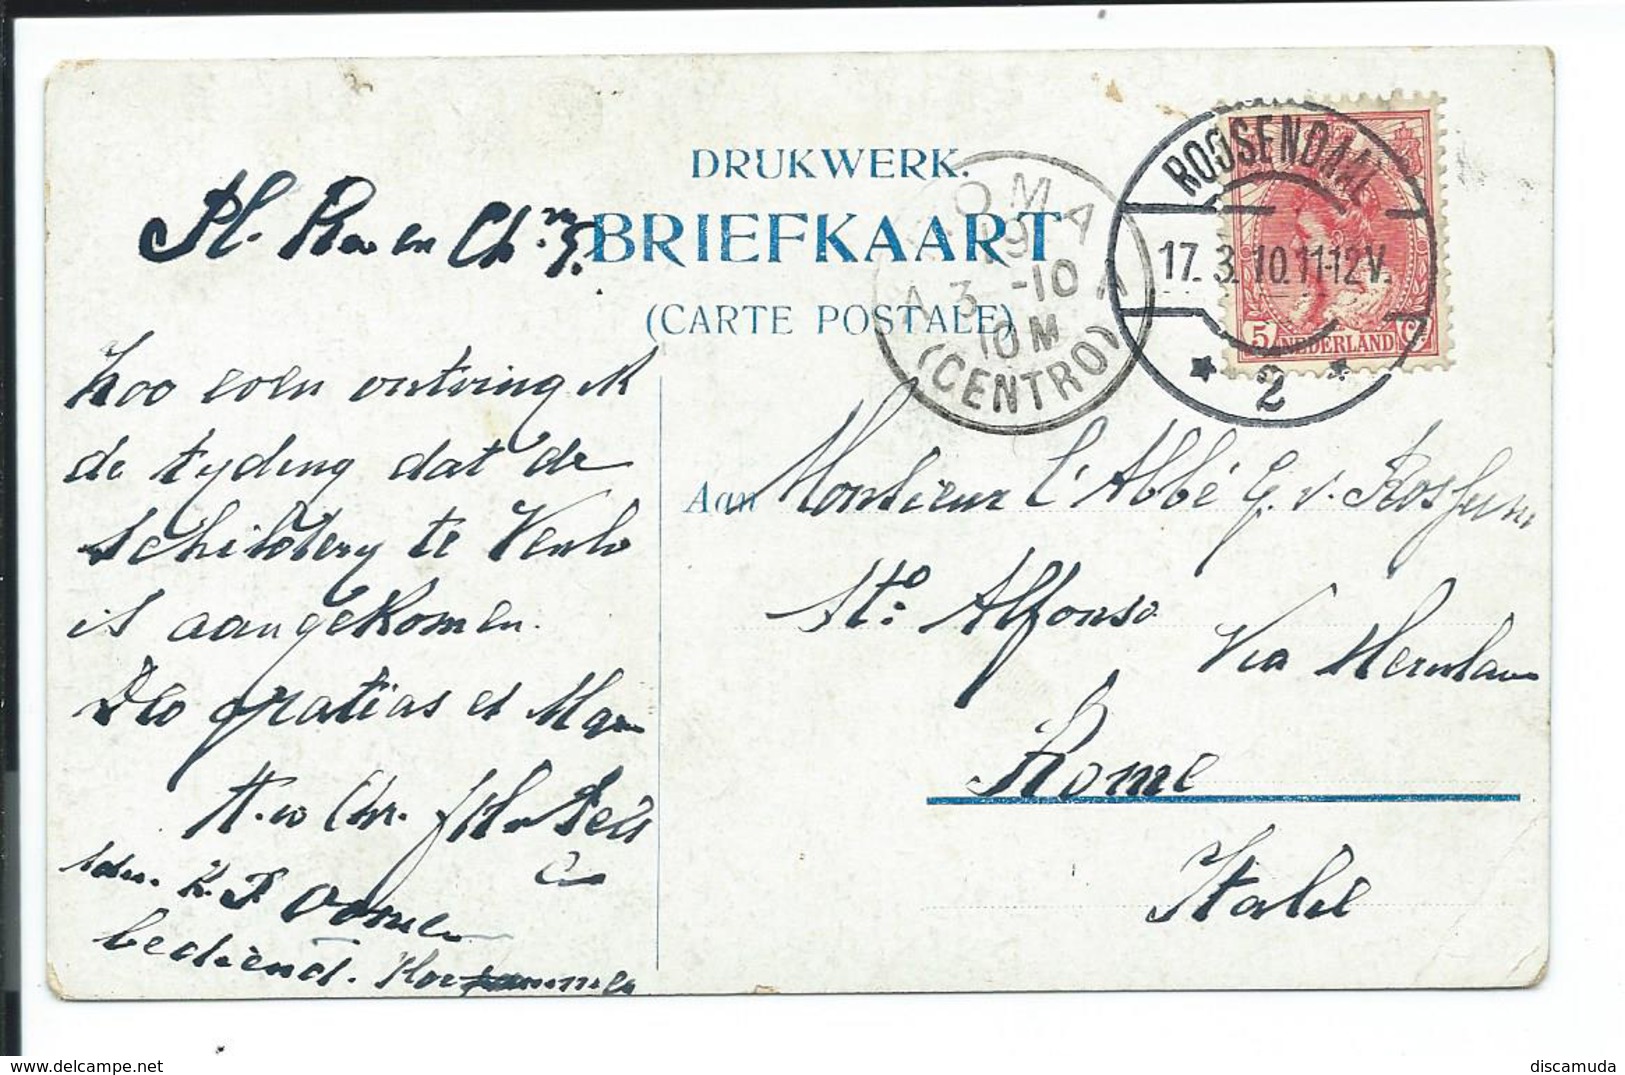 DRUKWERK.
BRIEFKAART
(CARTE POSTALE)
ROMA
19
3 -10
10 M
(CENTRO)
ROOSENDAAL
17. 3. 10. 11-12 V.
2
5 NEDERLAND
Pl. Rev en
Zoo even ontving ik
de tyding dat de
schildery te Venlo
is aangekomen.
Deo gratias et
K. F. Oomen
bediend.
Aan Monsieur l'Abbé G. v. Rossum
St. Alfonso
Via Merulana
Rome
Italie
discamuda